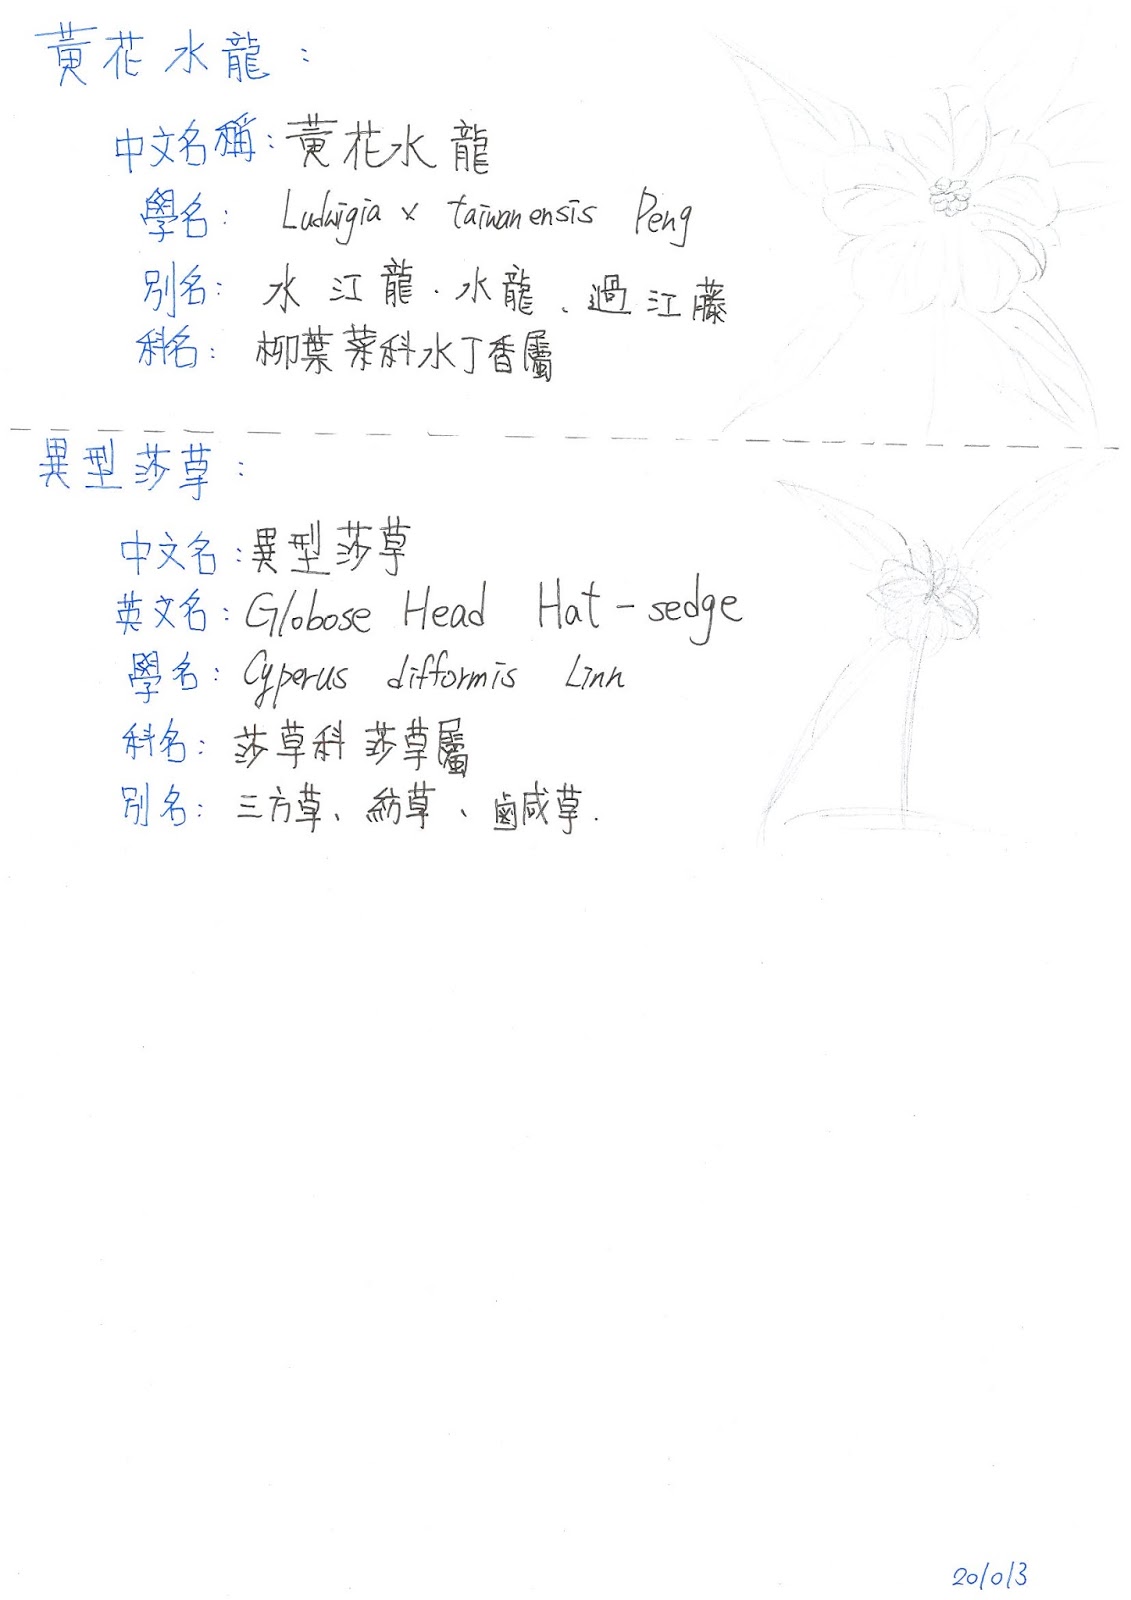 黃花水龍：
中文名稱：黃花水龍
學名： Ludwigia x taiwanensis Peng
別名： 水江龍．水龍、過江藤
科名： 柳葉菜科水丁香屬
異型莎草：
中文名：異型莎草
英文名：Globose Head Hat-sedge
學名：Cyperus difformis Linn
科名：莎草科莎草屬
別名：三方草、紡草、鹵咸草．
20/0/3